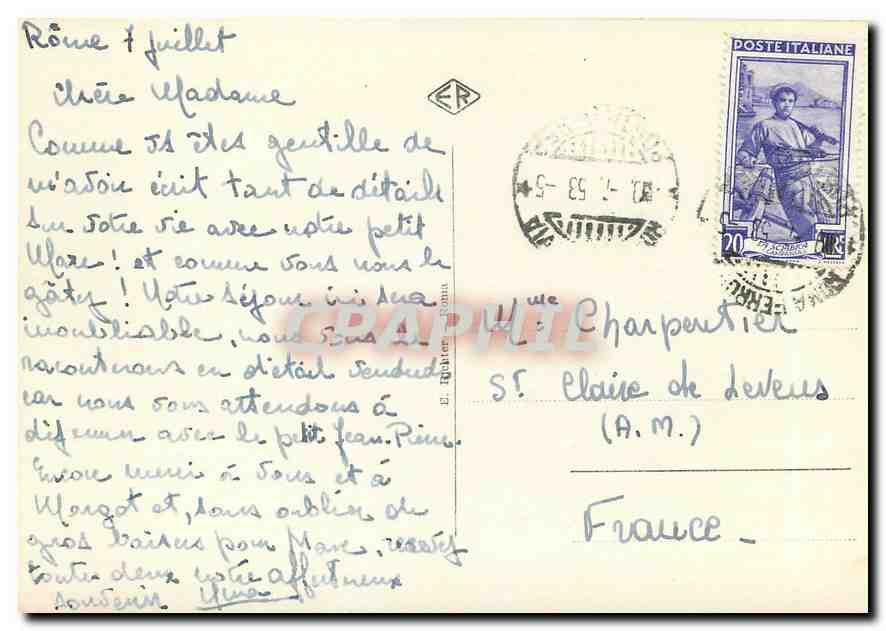 Rôme 7 juillet
Chère Madame
Comme vs êtes gentille de
m'avoir écrit tant de détails
sur votre vie avec notre petit
Marc ! et comme vous nous le
gâtez ! Notre séjour ici sera
inoubliable, nous vous le
raconterons en détail vendredi
car nous vous attendons à
déjeuner avec le petit Jean-Pierre.
Encore merci à vous et à
Margot et, sans oublier de
gros baisers pour Marc, recevez
toutes deux notre affectueux
souvenir
ER
E. Richter - Roma
POSTE ITALIANE
20
LIRE
CAMPANIA
-7. 53 -5
ROMA FERROVIA
CPAPHIL
Mme Charpentier
St Claire de Levens
(A.M.)
France